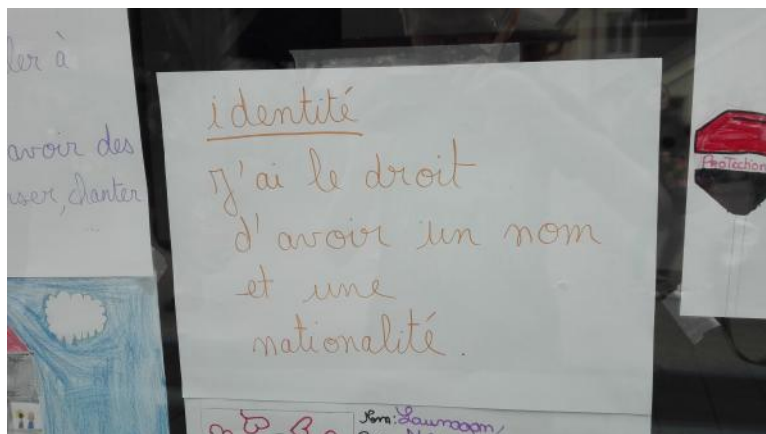 à
avoir des
chanter
identité
J'ai le droit
d'avoir un nom
et une
nationalité.
Protection
Nom: